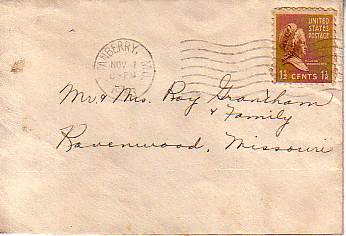 UNITED
STATES
POSTAGE
1½ CENTS 1½
NBERRY, MO.
NOV
PM
Mr. & Mrs. Roy Grantham
& Family
Ravenwood, Missouri